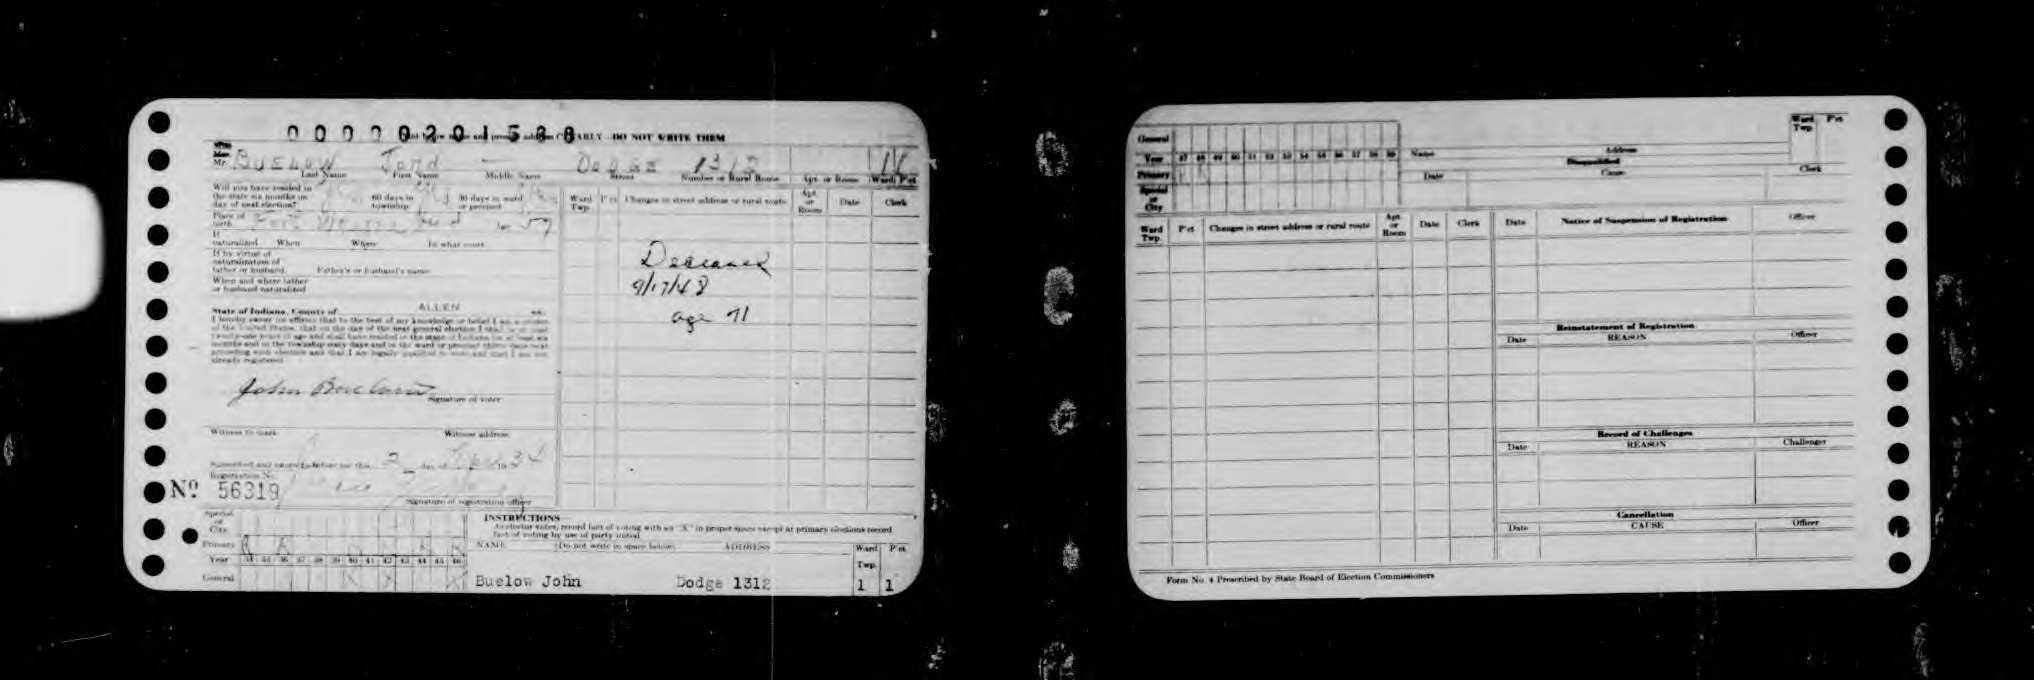 0000201588
CLEARLY—DO NOT WRITE THEM
Mr. BUELOW JOHN — DODGE 1312 1 1
Last Name First Name Middle Name Street Number or Rural Route Apt. or Room Ward P'ct
Will you have resided in
the state six months on 60 days in 30 days in ward
day of next election? township or precinct
Ward Twp. P'ct Changes in street address or rural route Apt. or Room Date Clerk
Place of
birth Fort Wayne Ind 57
If
naturalized When Where In what court
If by virtue of
naturalization of
father or husband Father's or husband's name
When and where father
or husband naturalized
Deceased
9/17/48
age 71
State of Indiana, County of ALLEN ss.
I hereby swear or affirm that to the best of my knowledge or belief I am a citizen
of the United States, that on the day of the next general election I shall be at least
twenty-one years of age and shall have resided in the state of Indiana for at least six
months and in the township sixty days and in the ward or precinct thirty days next
preceding such election and that I am legally qualified to vote and that I am not
already registered.
John Buelow
Signature of voter
Witness to mark Witness address
Subscribed and sworn to before me this 2 day 19 34
Registration No.
No 56319
Signature of registration officer
Special
or
City
Primary R R R R
Year 34 35 36 37 38 39 40 41 42 43 44 45 46
General X X X
INSTRUCTIONS
As elector votes, record fact of voting with an "X" in proper space except at primary elections record
fact of voting by use of party initial
NAME (Do not write in space below) ADDRESS Ward Twp. P'ct
Buelow John Dodge 1312 1 1
General
Year 47 48 49 50 51 52 53 54 55 56 57 58 59
Primary
Special
or
City
Name Address Ward Twp. P'ct
Disqualified
Date Cause Clerk
Ward Twp. P'ct Changes in street address or rural route Apt. or Room Date Clerk
Date Notice of Suspension of Registration Officer
Reinstatement of Registration
Date REASON Officer
Record of Challenges
Date REASON Challenger
Cancellation
Date CAUSE Officer
Form No. 4 Prescribed by State Board of Election Commissioners